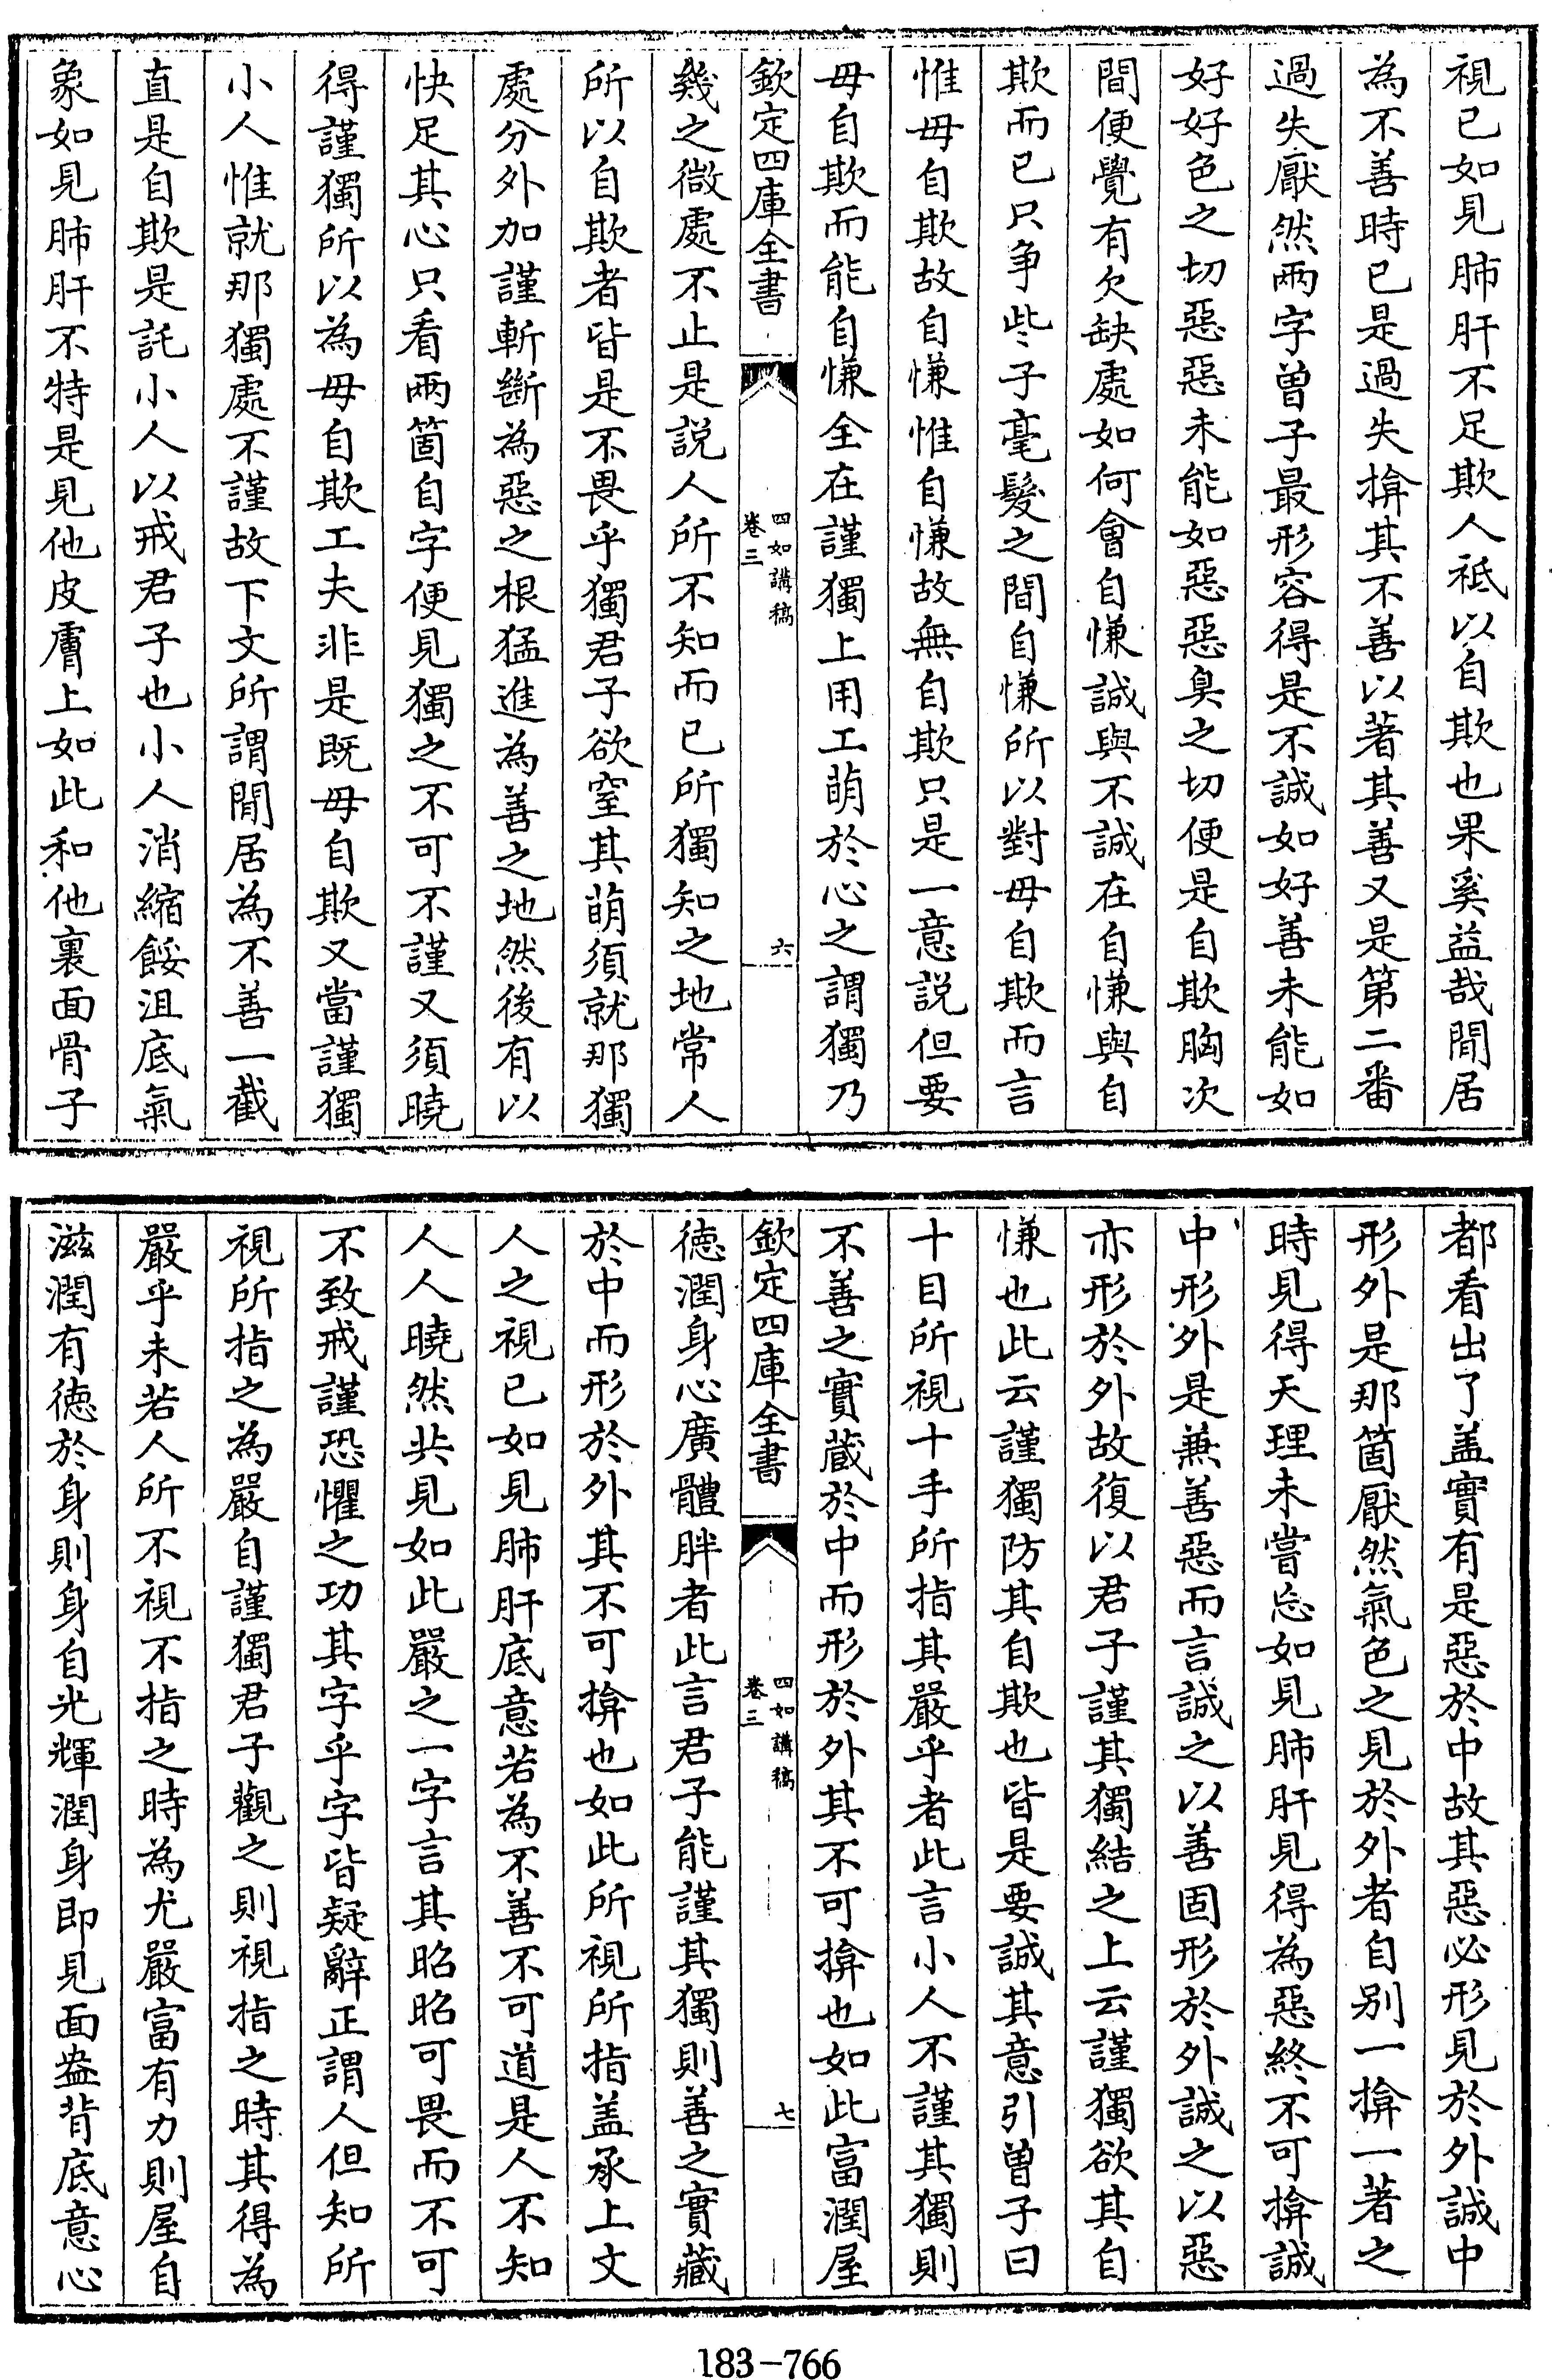 視已如見肺肝不足欺人祗以自欺也果奚益哉閒居
為不善時已是過失揜其不善以著其善又是第二番
過失厭然兩字曽子最形容得是不誠如好善未能如
好好色之切惡惡未能如惡惡臭之切便是自欺胸次
間便覺有欠缺處如何會自慊誠與不誠在自慊與自
欺而已只争些子毫髮之間自慊所以對毋自欺而言
惟毋自欺故自慊惟自慊故無自欺只是一意説但要
毋自欺而能自慊全在謹獨上用工萌於心之謂獨乃
欽定四庫全書
四如講稿
卷三
六
幾之微處不止是説人所不知而已所獨知之地常人
所以自欺者皆是不畏乎獨君子欲窒其萌須就那獨
處分外加謹斬斷為惡之根猛進為善之地然後有以
快足其心只看兩箇自字便見獨之不可不謹又須曉
得謹獨所以為毋自欺工夫非是既毋自欺又當謹獨
小人惟就那獨處不謹故下文所謂閒居為不善一截
直是自欺是託小人以戒君子也小人消縮餒沮底氣
象如見肺肝不特是見他皮膚上如此和他裏面骨子
都看出了盖實有是惡於中故其惡必形見於外誠中
形外是那箇厭然氣色之見於外者自别一揜一著之
時見得天理未嘗忘如見肺肝見得為惡終不可揜誠
中形外是兼善惡而言誠之以善固形於外誠之以惡
亦形於外故復以君子謹其獨結之上云謹獨欲其自
慊也此云謹獨防其自欺也皆是要誠其意引曽子曰
十目所視十手所指其嚴乎者此言小人不謹其獨則
不善之實蔵於中而形於外其不可揜也如此富潤屋
欽定四庫全書
四如講稿
卷三
七
徳潤身心廣體胖者此言君子能謹其獨則善之實藏
於中而形於外其不可揜也如此所視所指盖承上文
人之視已如見肺肝底意若為不善不可道是人不知
人人曉然共見如此嚴之一字言其昭昭可畏而不可
不致戒謹恐懼之功其字乎字皆疑辭正謂人但知所
視所指之為嚴自謹獨君子觀之則視指之時其得為
嚴乎未若人所不視不指之時為尤嚴富有力則屋自
滋潤有徳於身則身自光輝潤身即見面盎背底意心
183-766